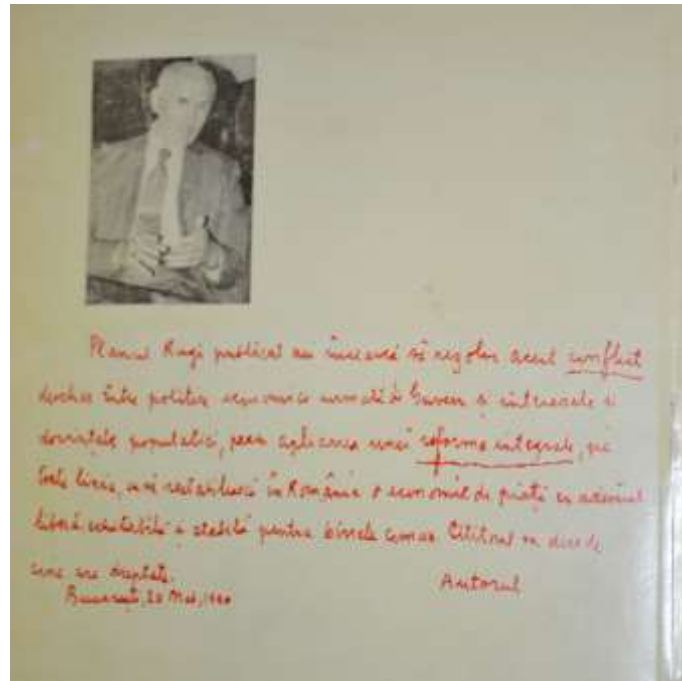 Planul Rugi publicat au încearcă să rezolve acest conflict
deschis între politica economică urmată de Guvern și interesele și
dorințele populației, prin aplicarea unei reforme integrale, pe
toate liniile, să restabilească în România o economie de piață cu adevărat
liberă și stabilă pentru binele comun. Cititorul va decide
cine are dreptate.
București, 20 Mai, Autorul